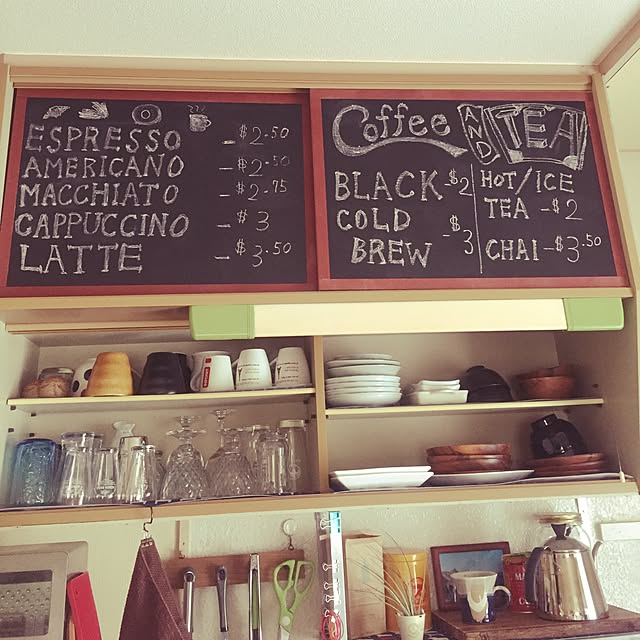 ESPRESSO - $2.50
AMERICANO - $2.50
MACCHIATO - $2.75
CAPPUCCINO - $3
LATTE - $3.50
Coffee AND TEA
BLACK - $2
COLD
BREW - $3
HOT/ICE
TEA - $2
CHAI - $3.50